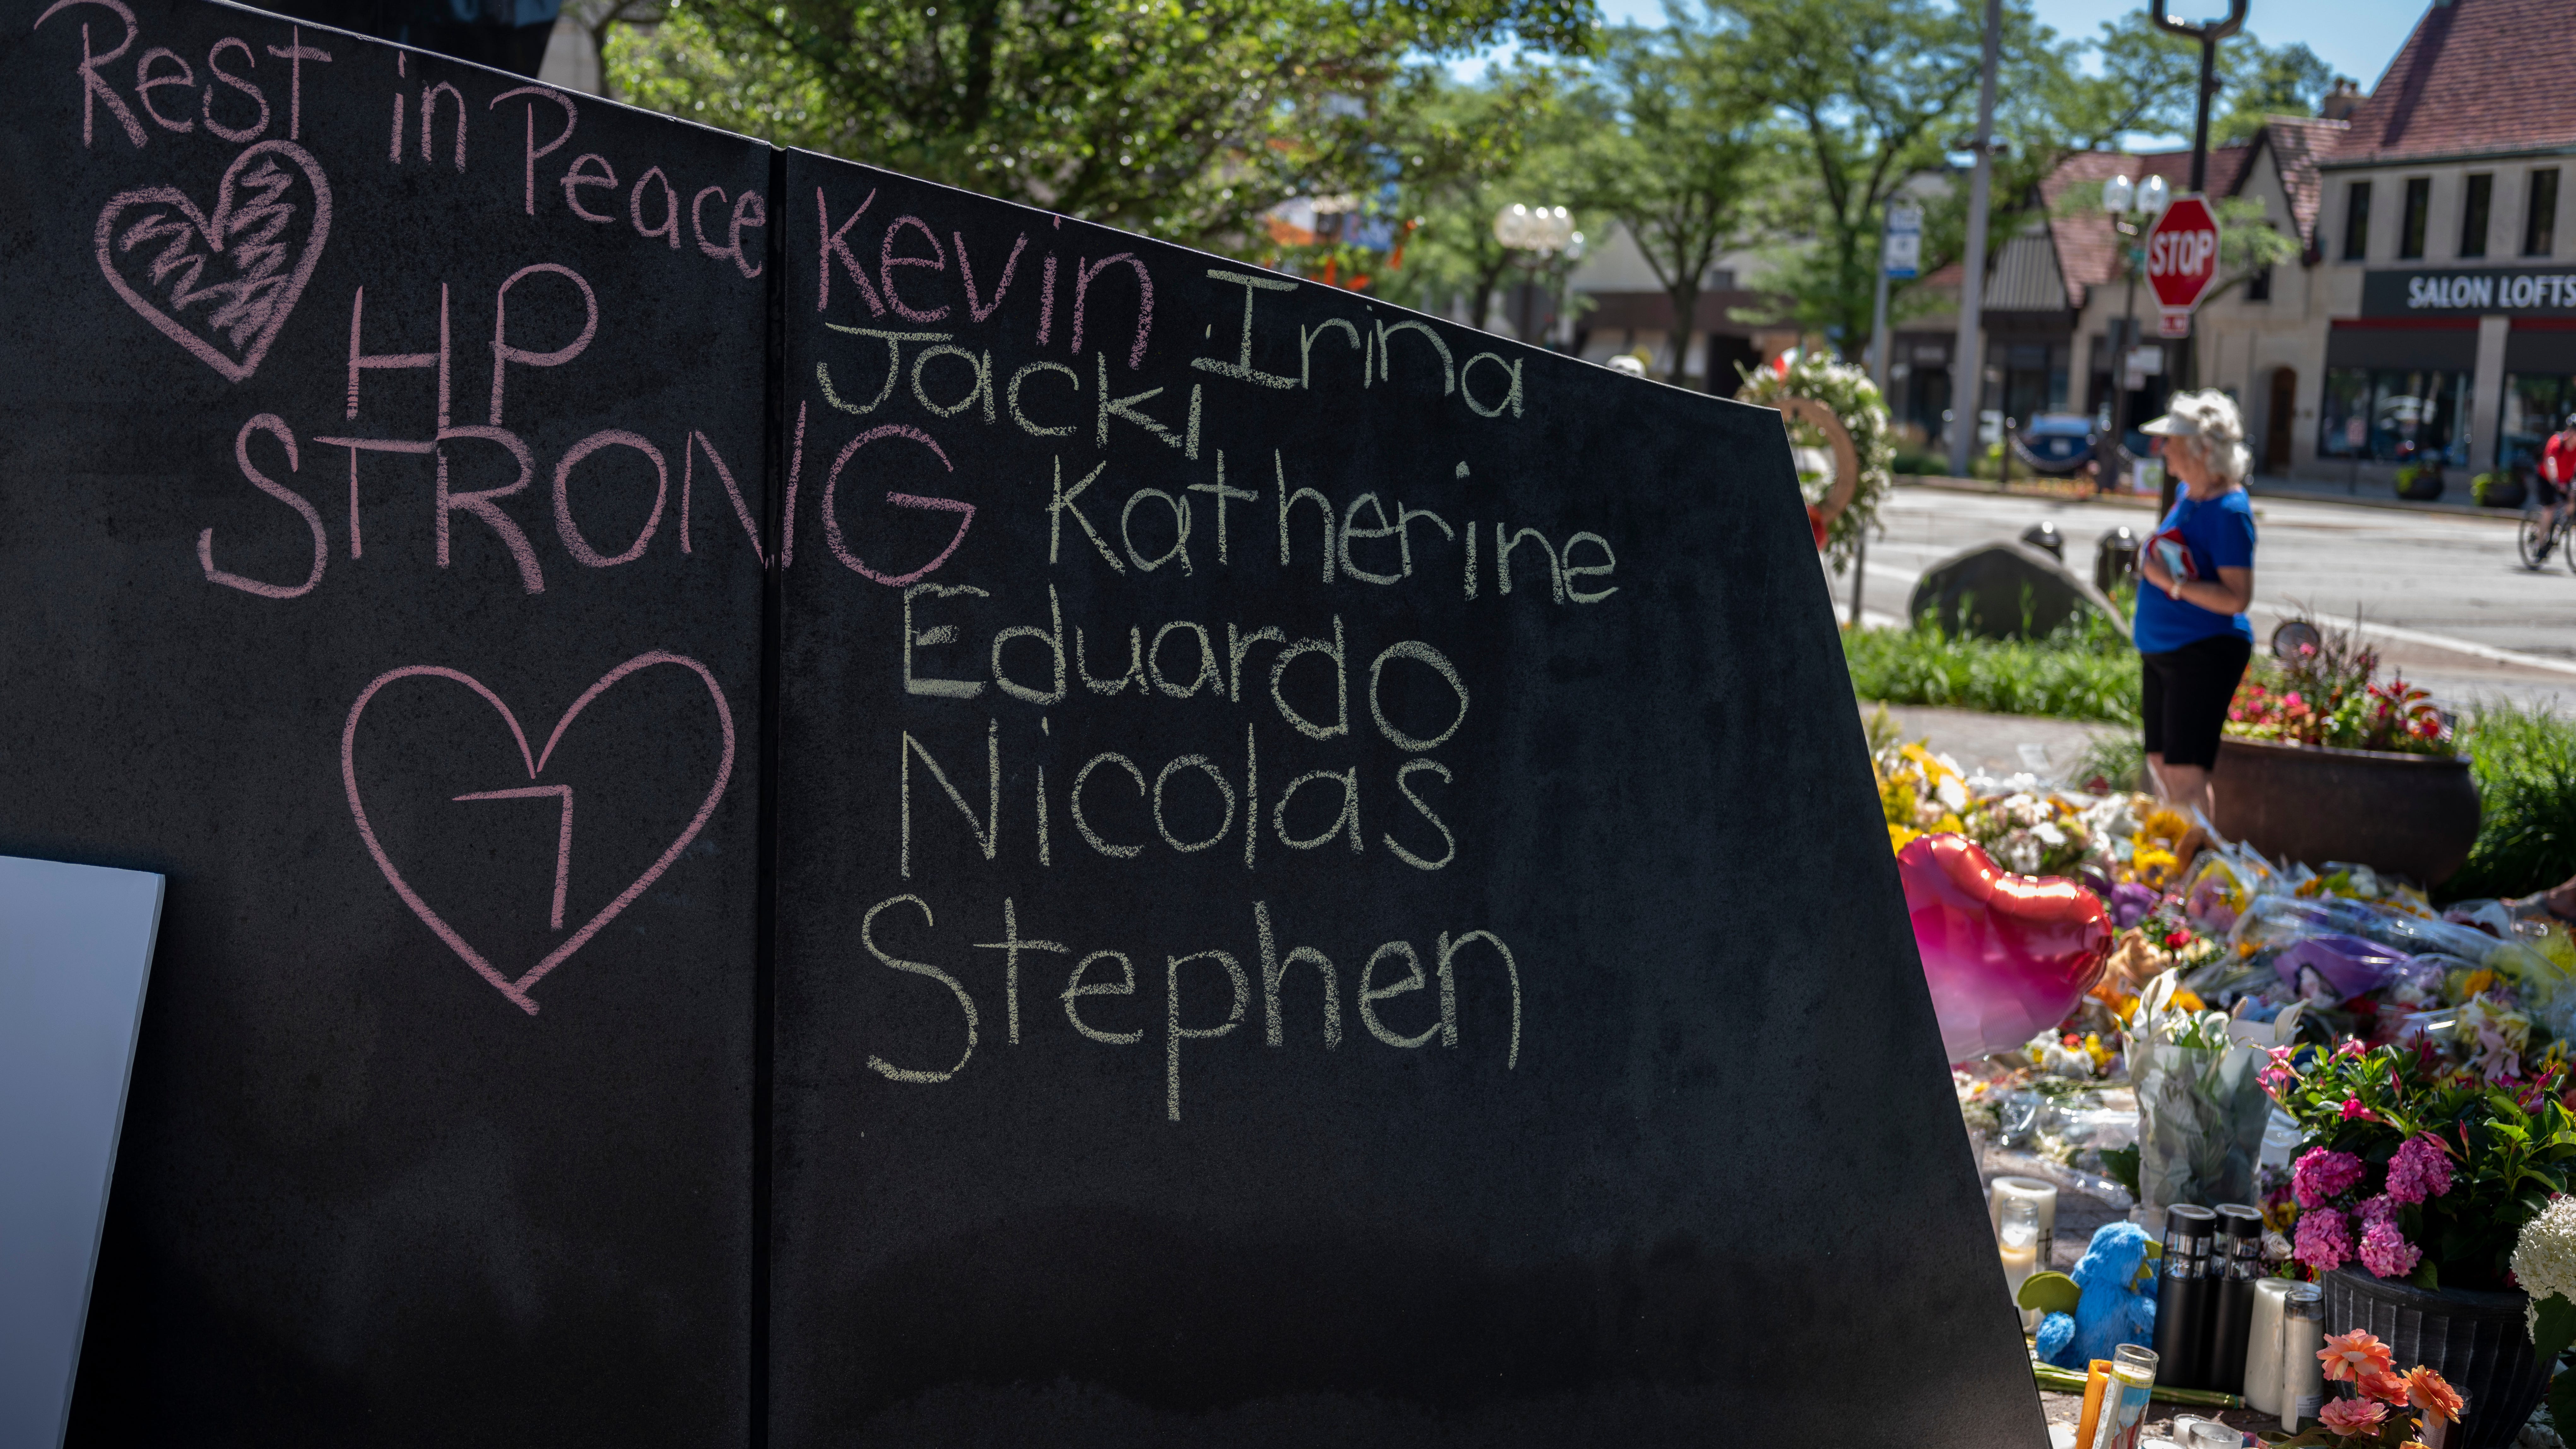 Rest in Peace
HP
STRONG
7
Kevin
Irina
Jacki
Katherine
Eduardo
Nicolas
Stephen
STOP
SALON LOFTS